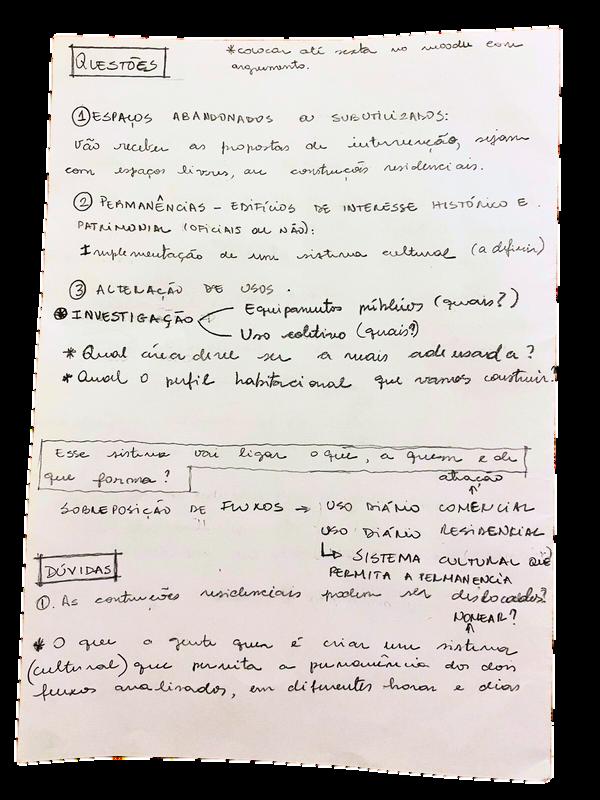 QUESTÕES
*colocar até sexta no moodle com
argumento.
① ESPAÇOS ABANDONADOS OU SUBUTILIZADOS:
Vão receber as propostas de intervenção, sejam
com espaços livres, ou construções residenciais.
② PERMANÊNCIAS - EDIFÍCIOS DE INTERESSE HISTÓRICO E
PATRIMONIAL (OFICIAIS OU NÃO):
Implementação de um sistema cultural (a definir)
③ ALTERAÇÃO DE USOS.
* INVESTIGAÇÃO
Equipamentos públicos (quais?)
Uso coletivo (quais?)
* Qual área deve ser a mais adensada?
* Qual o perfil habitacional que vamos construir?
Esse sistema vai ligar o quê, a quem e de
que forma?
atração
SOBREPOSIÇÃO DE FLUXOS → USO DIÁRIO COMERCIAL
USO DIÁRIO RESIDENCIAL
↳ SISTEMA CULTURAL QUE
PERMITA A PERMANENCIA
DÚVIDAS
①. As contruções residenciais podem ser deslocadas?
NOMEAR?
* O que a gente quer é criar um sistema
(cultural) que permita a permanência dos dois
fluxos analisados, em diferentes horas e dias